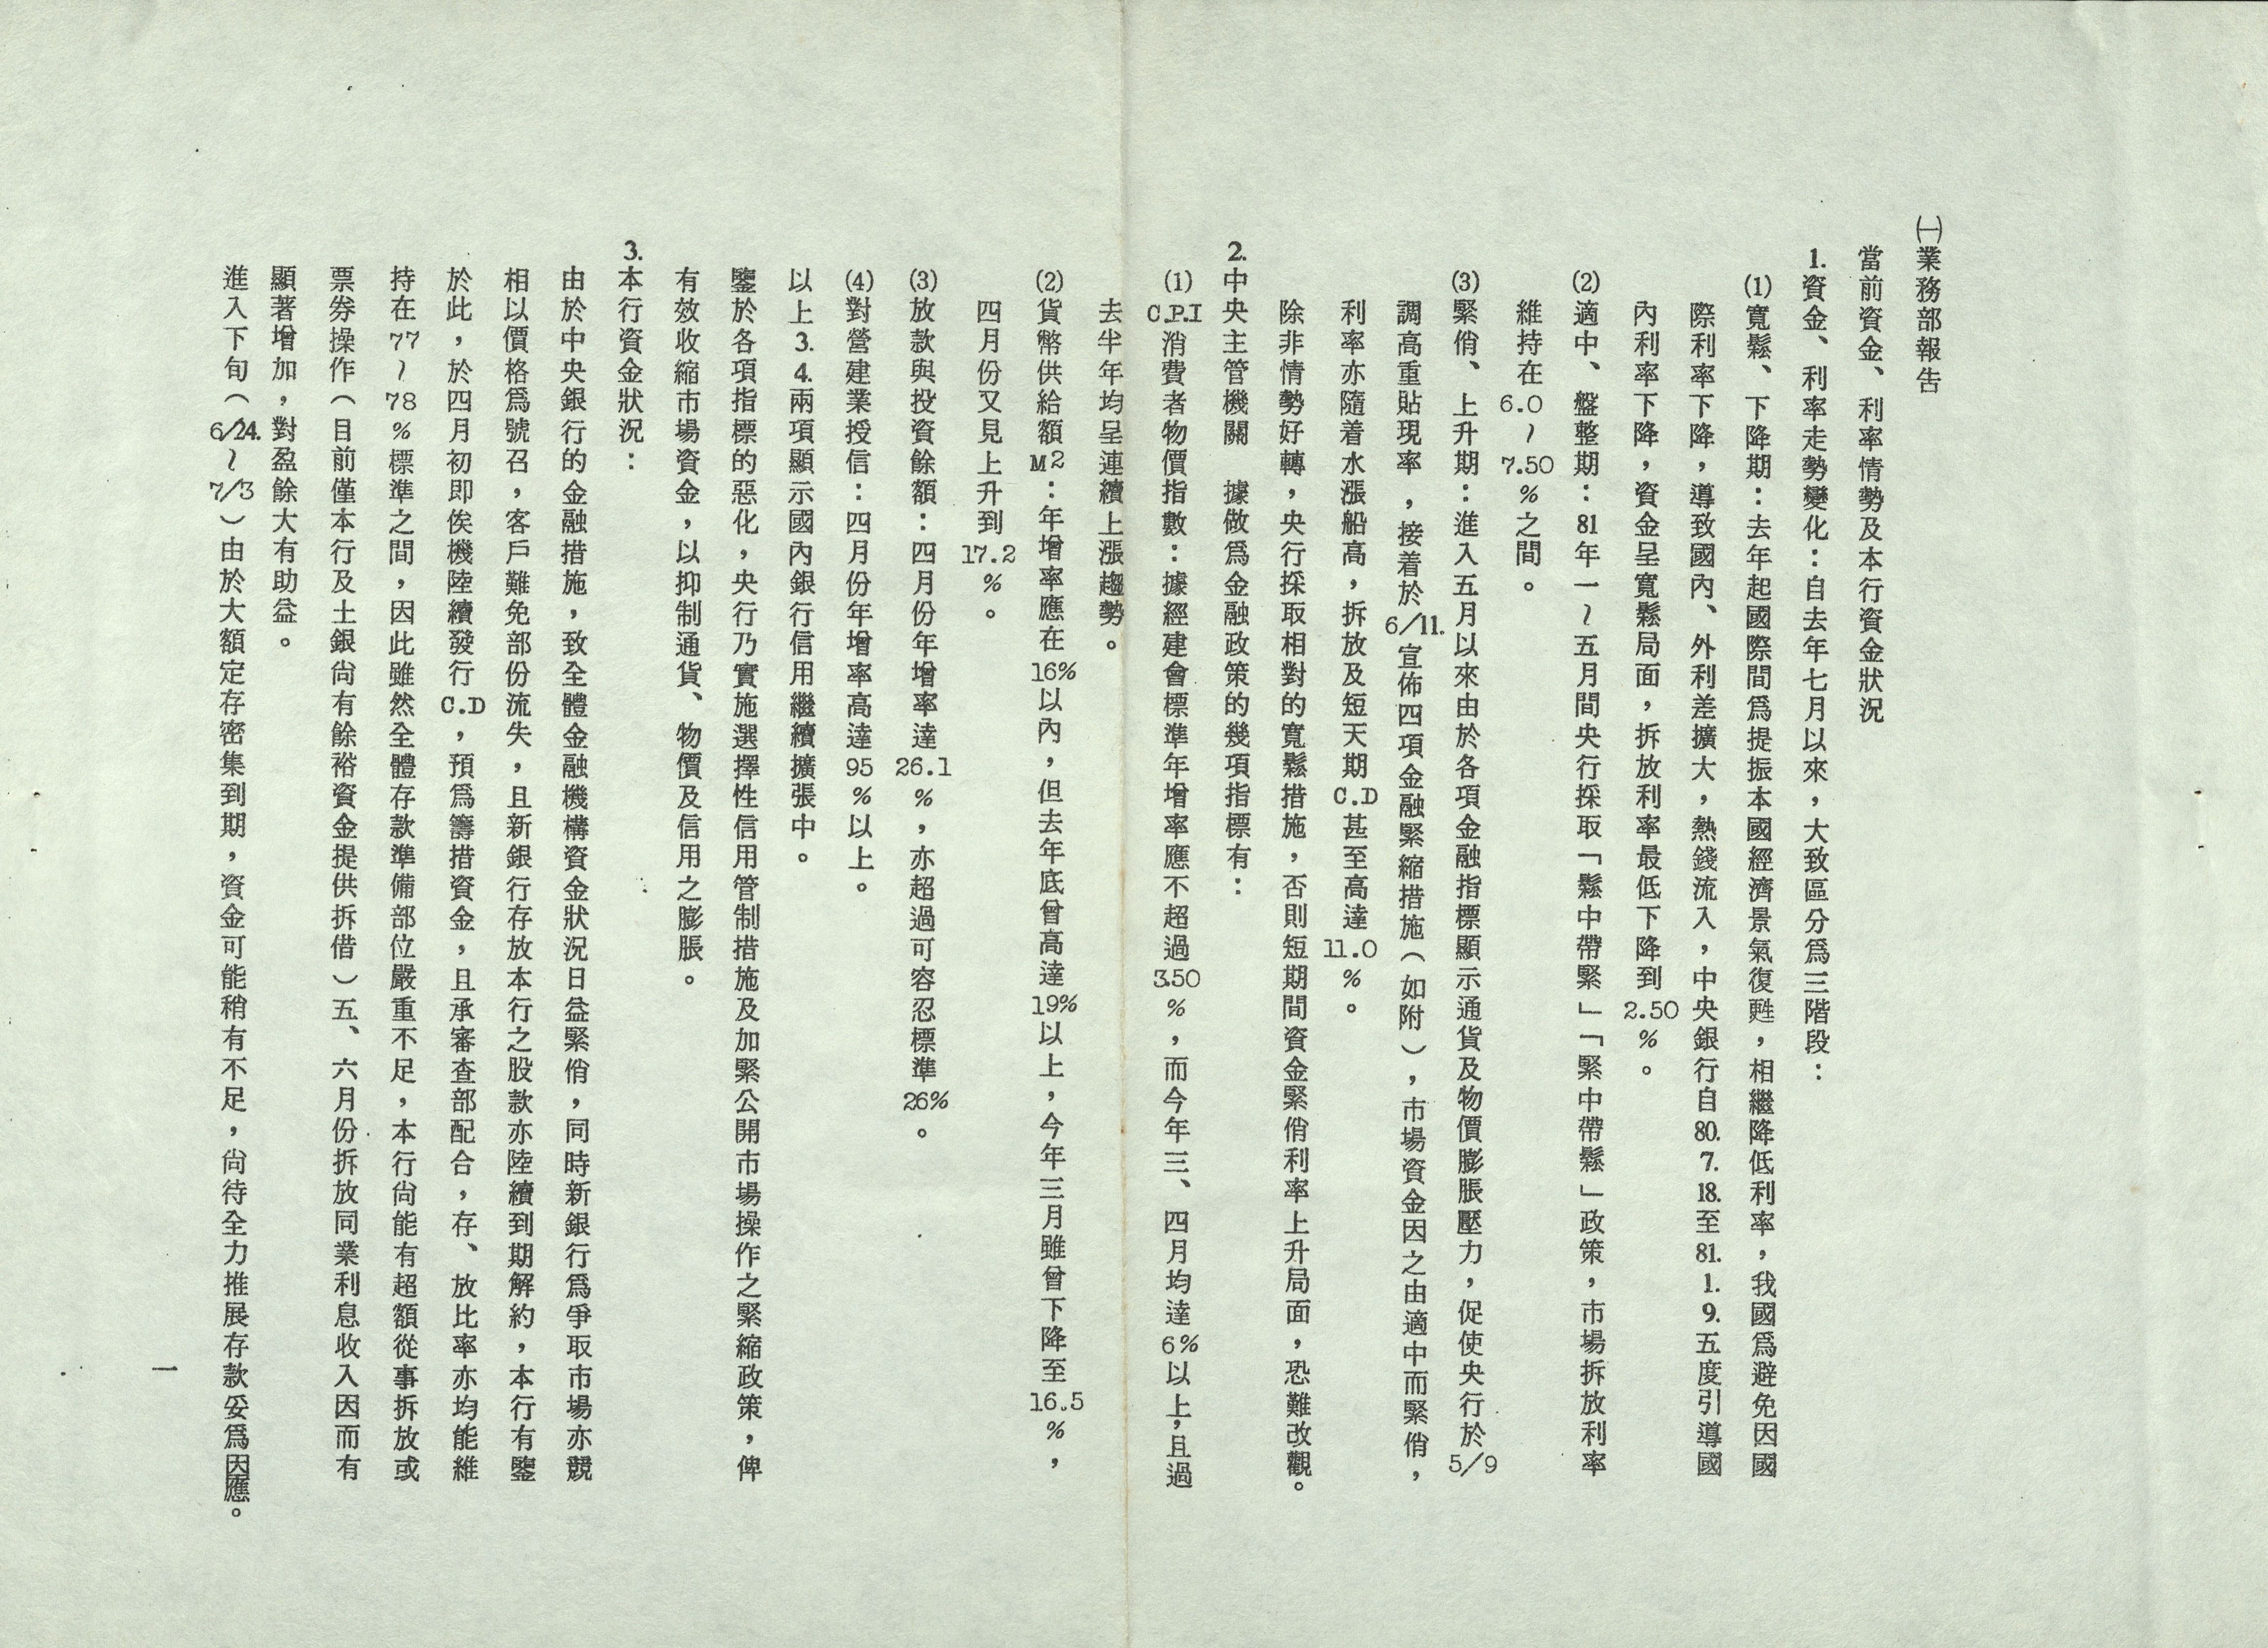 ㈠業務部報告
當前資金、利率情勢及本行資金狀況
1.資金、利率走勢變化：自去年七月以來，大致區分爲三階段：
(1)寬鬆、下降期：去年起國際間爲提振本國經濟景氣復甦，相繼降低利率，我國爲避免因國
際利率下降，導致國內、外利差擴大，熱錢流入，中央銀行自80.7.18.至81.1.9.五度引導國
內利率下降，資金呈寬鬆局面，拆放利率最低下降到2.50%。
(2)適中、盤整期：81年一～五月間央行採取「鬆中帶緊」「緊中帶鬆」政策，市場拆放利率
維持在6.0～7.50%之間。
(3)緊俏、上升期：進入五月以來由於各項金融指標顯示通貨及物價膨脹壓力，促使央行於5/9
調高重貼現率，接着於6/11.宣佈四項金融緊縮措施（如附），市場資金因之由適中而緊俏，
利率亦隨着水漲船高，拆放及短天期C.D甚至高達11.0%。
除非情勢好轉，央行採取相對的寬鬆措施，否則短期間資金緊俏利率上升局面，恐難改觀。
2.中央主管機關　據做爲金融政策的幾項指標有：
(1)C.P.I消費者物價指數：據經建會標準年增率應不超過3.50%，而今年三、四月均達6%以上，且過
去半年均呈連續上漲趨勢。
(2)貨幣供給額M2：年增率應在16%以內，但去年底曾高達19%以上，今年三月雖曾下降至16.5%，
四月份又見上升到17.2%。
(3)放款與投資餘額：四月份年增率達26.1%，亦超過可容忍標準26%。
(4)對營建業授信：四月份年增率高達95%以上。
以上3.4.兩項顯示國內銀行信用繼續擴張中。
鑒於各項指標的惡化，央行乃實施選擇性信用管制措施及加緊公開市場操作之緊縮政策，俾
有效收縮市場資金，以抑制通貨、物價及信用之膨脹。
3.本行資金狀況：
由於中央銀行的金融措施，致全體金融機構資金狀況日益緊俏，同時新銀行爲爭取市場亦競
相以價格爲號召，客戶難免部份流失，且新銀行存放本行之股款亦陸續到期解約，本行有鑒
於此，於四月初即俟機陸續發行C.D，預爲籌措資金，且承審查部配合，存、放比率亦均能維
持在77～78%標準之間，因此雖然全體存款準備部位嚴重不足，本行尚能有超額從事拆放或
票券操作（目前僅本行及土銀尚有餘裕資金提供拆借）五、六月份拆放同業利息收入因而有
顯著增加，對盈餘大有助益。
進入下旬（6/24.～7/3）由於大額定存密集到期，資金可能稍有不足，尚待全力推展存款妥爲因應。
一